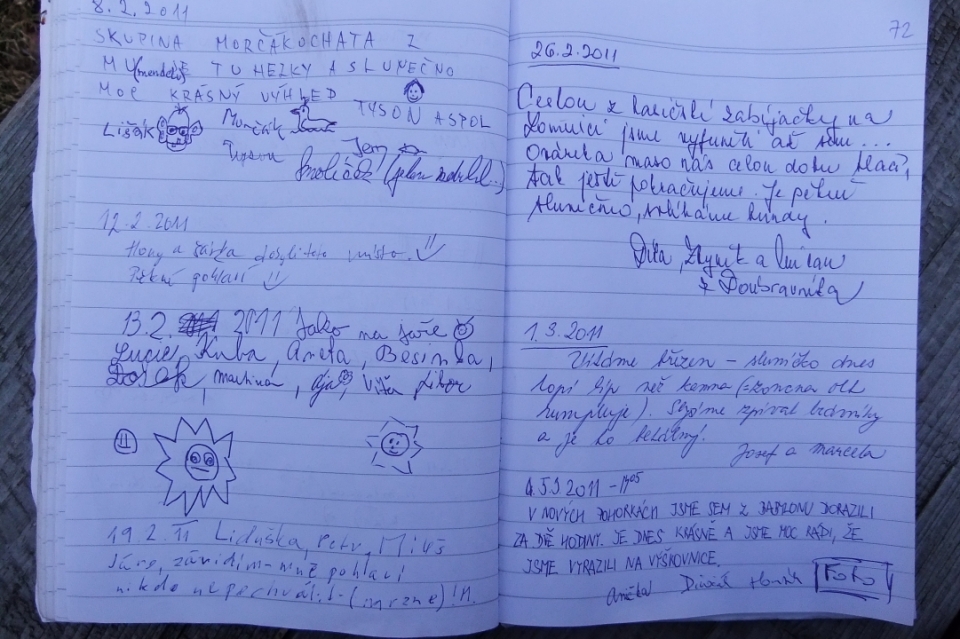 8.2.2011
SKUPINA MORČÁKOCHATA Z
MU(mendelu) JE TU HEZKY A SLUNEČNO
MOC KRÁSNÝ VÝHLED
TYSON A SPOL
Lišák Morčák
Tyson Jem
Smolíček (jelen nedorazil...)
12.2.2011
Hony a Šárka dobyli toto místo.
Pěkné pohlaví
13.2. 2011 Jako na jaře
Lucie, Kuba, Aneta, Besinka,
martina, Ája, Víťa Libor
19.2.11 Liduška, Petr, Míša
Jůro, závidím - mně pohlaví
nikdo nepochválil - (mrzne)!!!
72
26.2.2011
Cestou z zabíjačky na
Lomnici jsme vyfuněli až sem...
Ovárka maso nás celou dobu tlačí,
tak ještě pokračujeme. Je pěkně
slunečno,
Dita, Zbyněk a Milan
z Doubravníka
1.3.2011
Vítáme březen - sluníčko dnes
topí líp než kamna
Slyšíme zpívat
a je to
Josef a Marcela
5.3 2011 - 1405
V NOVÝCH POHORKÁCH JSME SEM Z JABLONU DORAZILI
ZA DVĚ HODINY. JE DNES KRÁSNĚ A JSME MOC RÁDI, ŽE
JSME VYRAZILI NA VÝŠROVNICE.
Anička Honzík FOTO